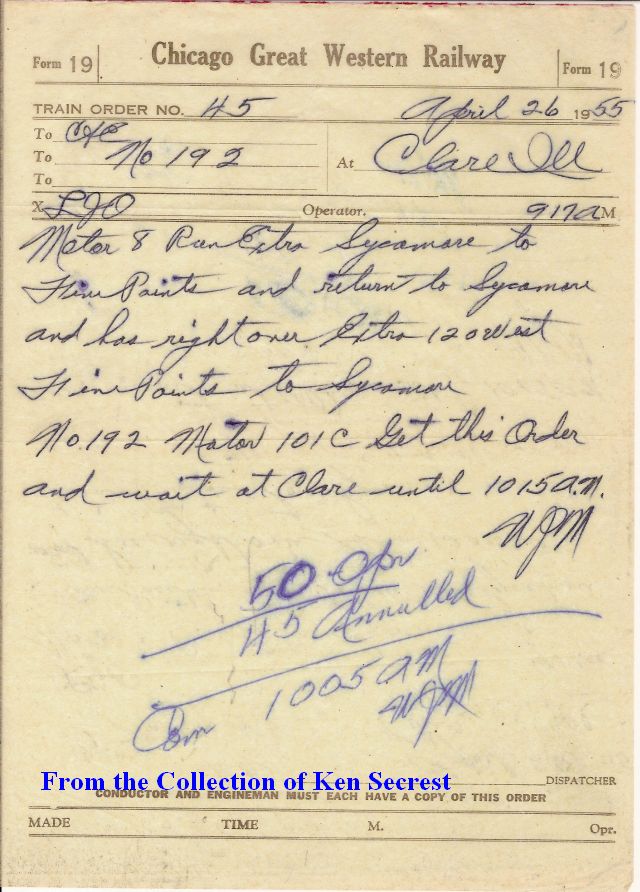 Form 19 Chicago Great Western Railway Form 19
TRAIN ORDER NO. 45 April 26 1955
To C&E
To No 192 At Clare Ill
To
X LJO Operator. 917A M
Motor 8 Run Extra Sycamore to
Five Points and return to Sycamore
and has right over Extra 120 West
Five Points to Sycamore
No. 192 Motor 101C Get this Order
and wait at Clare until 1015 A.M.
WJM
50 Opr
45 Annulled
Com 1005 AM
WJM
From the Collection of Ken Secrest
DISPATCHER
CONDUCTOR AND ENGINEMAN MUST EACH HAVE A COPY OF THIS ORDER
MADE TIME M. Opr.